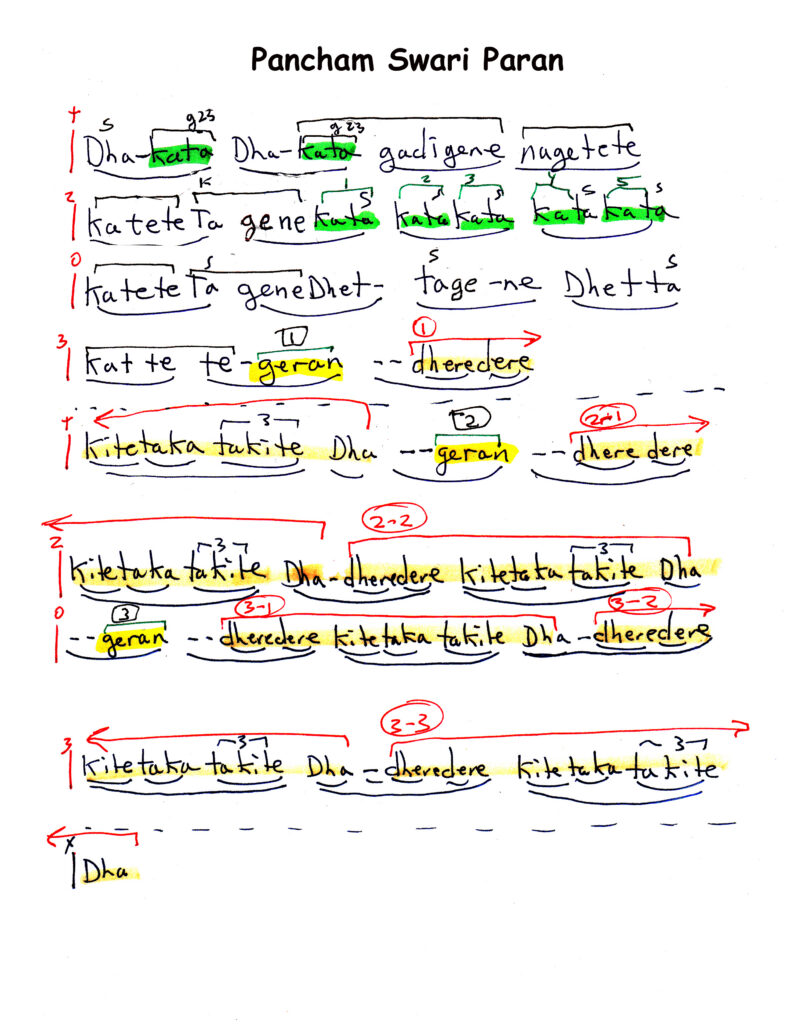 Pancham Swari Paran
+ S g23 g23
Dha-kata Dha-kata gadigene nagetete
2 K 1 S 2 S 3 S 4 S 5 S
katete Ta gene kata kata kata kata kata
0 S S S
katete Ta geneDhet- tage-ne Dhetta
3 1 1
kat te te-geran --dheredere
+ 3 2 2-1
kitetaka takite Dha --geran --dheredere
2-2
2 3 3
kitetaka takite Dha-dheredere kitetaka takite Dha
0 3 3-1 3-2
--geran --dheredere kitetaka takite Dha-dheredere
3-3
3 3 3
kitetaka takite Dha -dheredere kitetaka takite
x
Dha